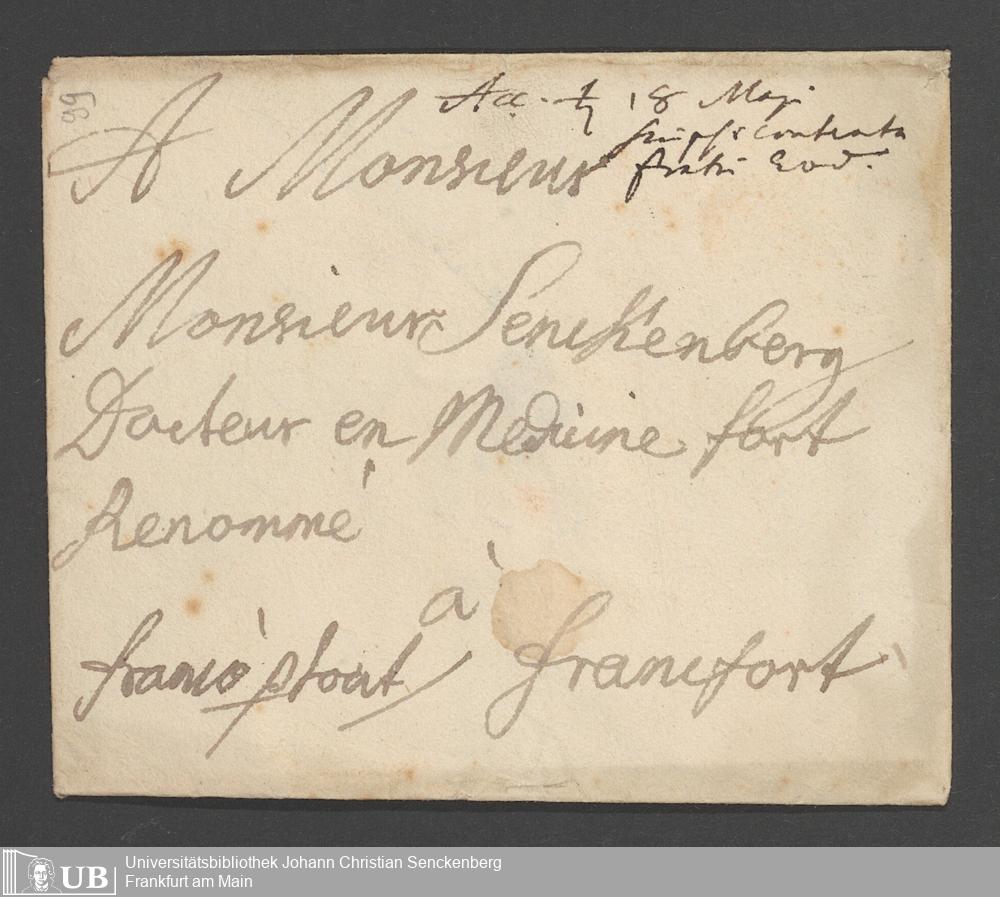 99
Acc. ♄ 18 Maji
scripsi contenta
fratri eod.
A Monsieur
Monsieur Senckenberg
Docteur en Medicine fort
Renommé
à
franco p tout Francfort
UB Universitätsbibliothek Johann Christian Senckenberg
Frankfurt am Main